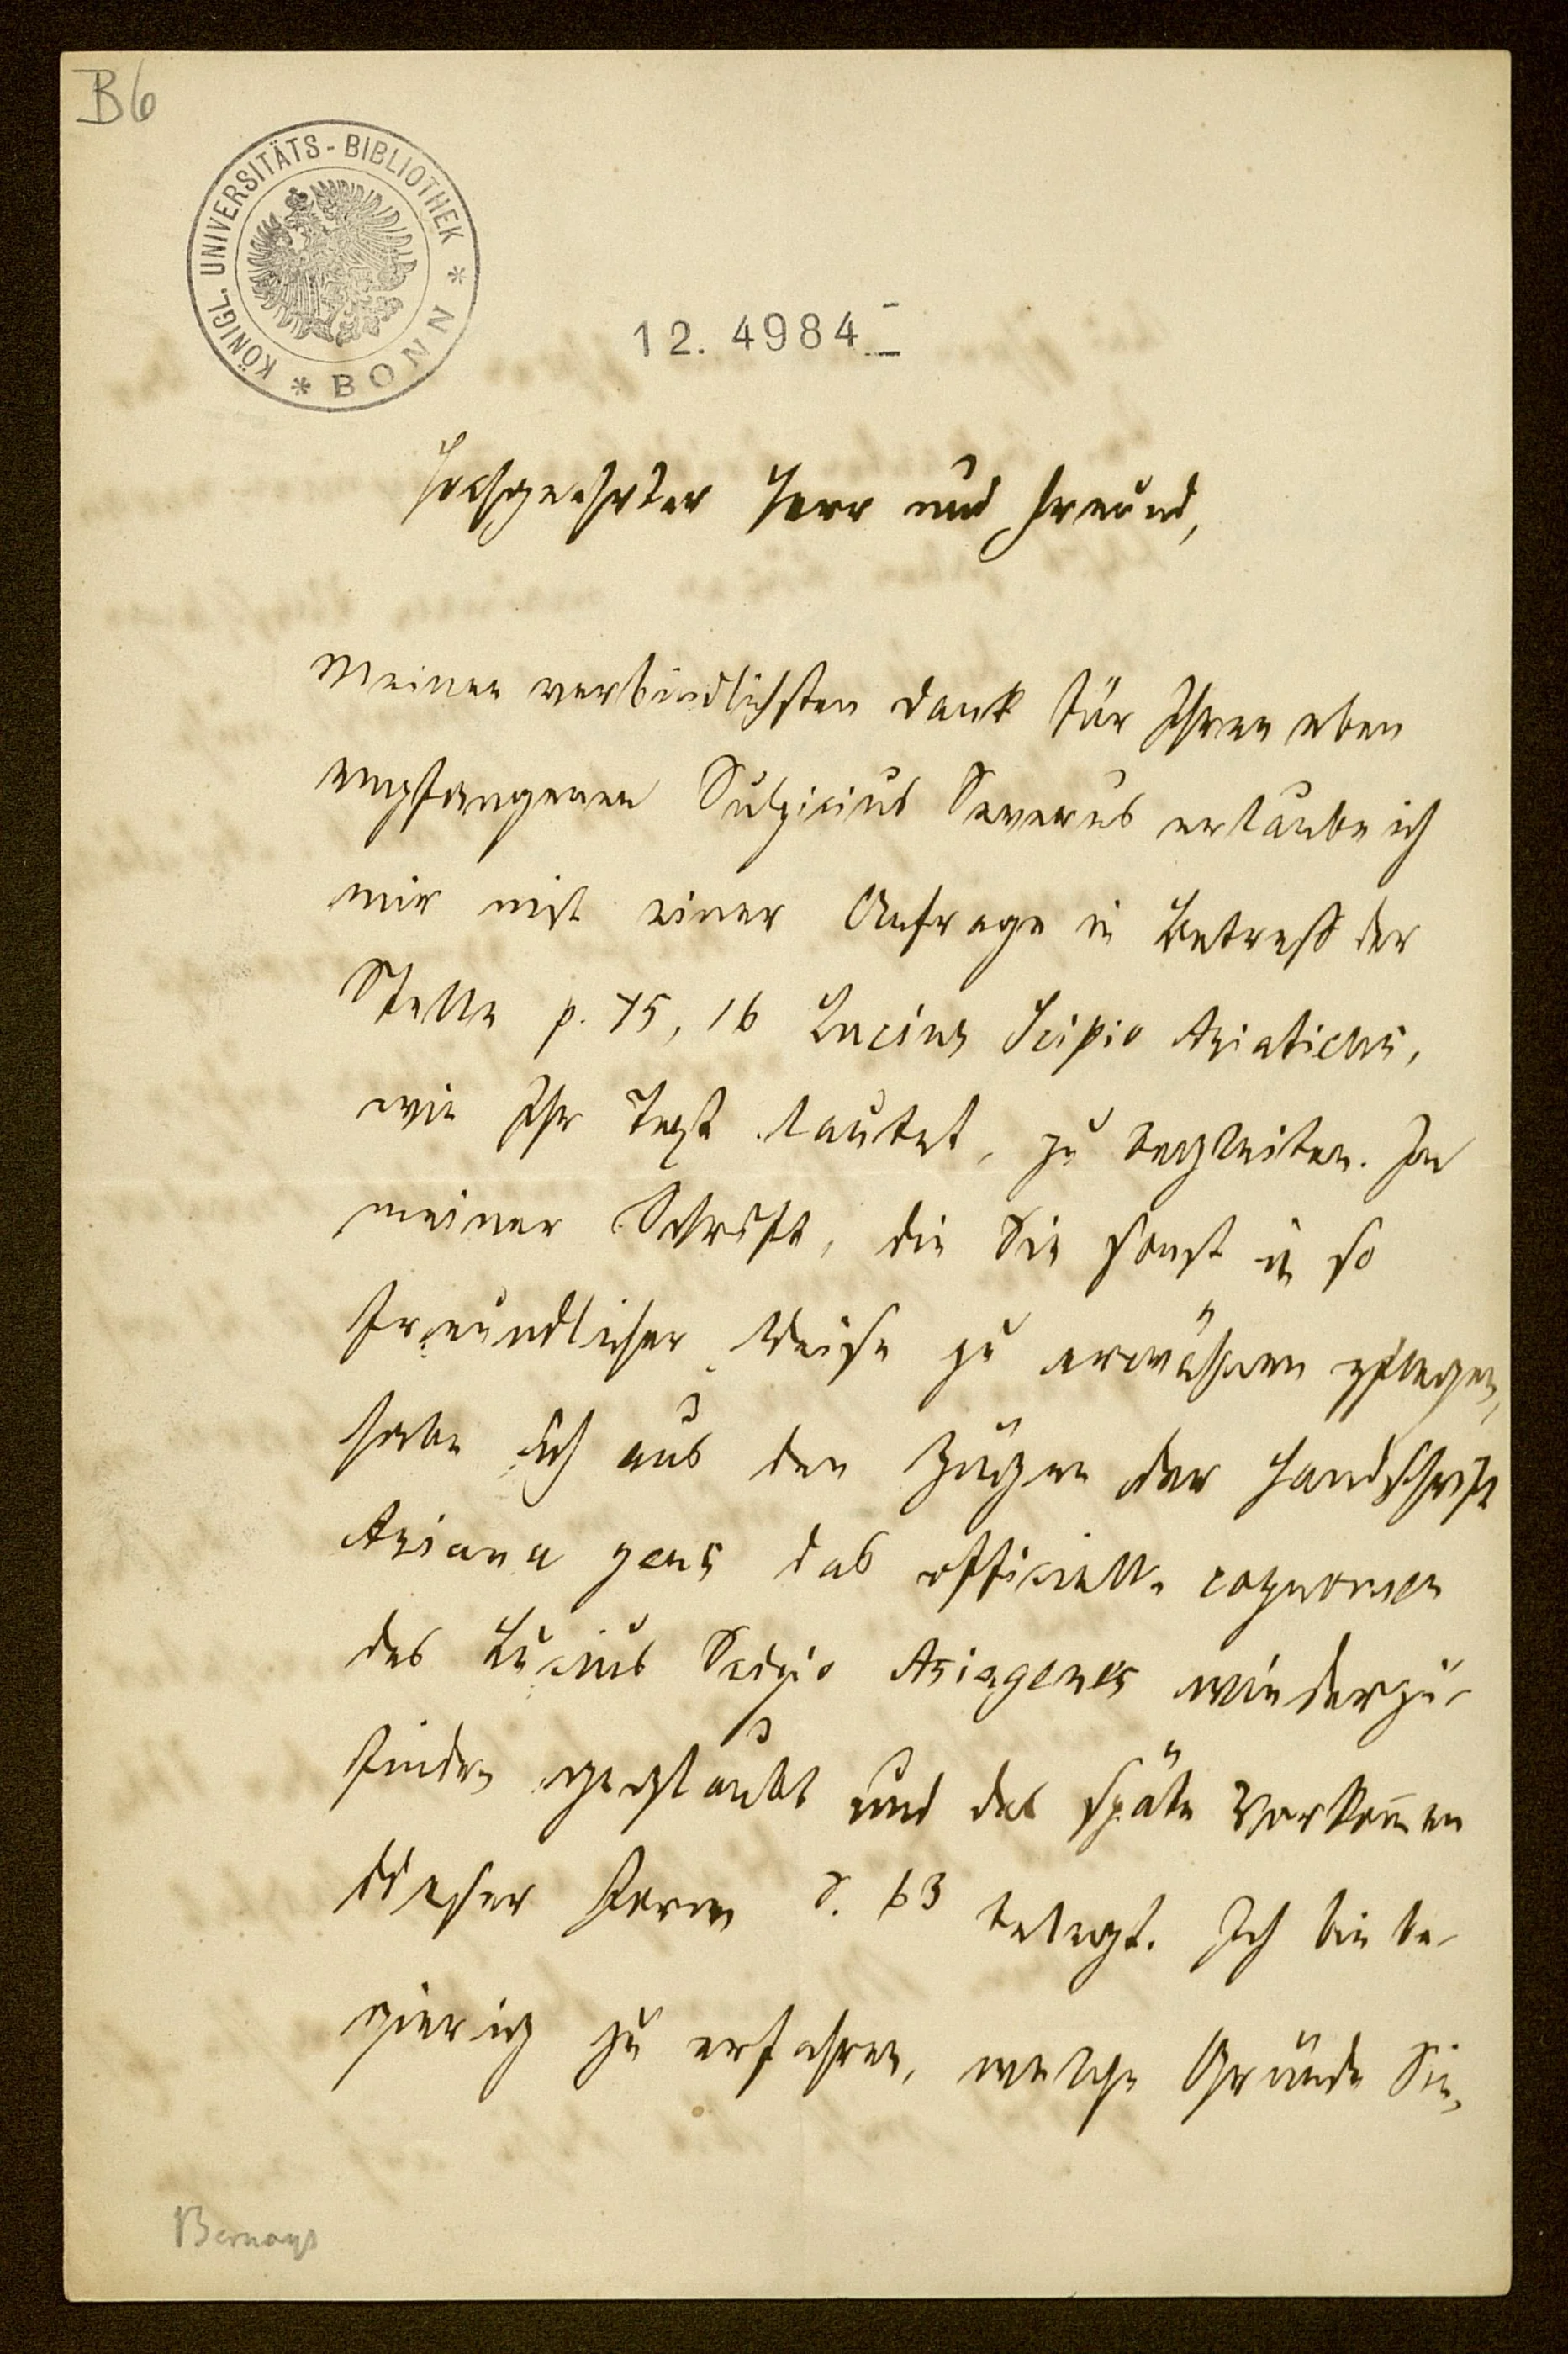 B6
KÖNIGL. UNIVERSITÄTS-BIBLIOTHEK * BONN *
12. 4984
Hochgeehrter Herr und Freund,
Meinen verbindlichsten Dank für Ihren eben
empfangenen Sulpicius Severus erlaube ich
mir mit einer Anfrage in Betreff der
Stelle p. 75, 16 Lucius Scipio Asiaticus,
wie Ihr Text lautet, zu begleiten. In
meiner Schrift, die Sie sonst in so
freundlicher Weise zu erwähnen pflegen,
habe ich aus den Zügen der Handschrift
Asiana gens das officielle cognomen
des Lucius Scipio Asiagenes wiederzu-
finden geglaubt und das späte Vorkommen
dieser Form S. 63 belegt. Ich bin be-
gierig zu erfahren, welche Gründe Sie,
Bernays